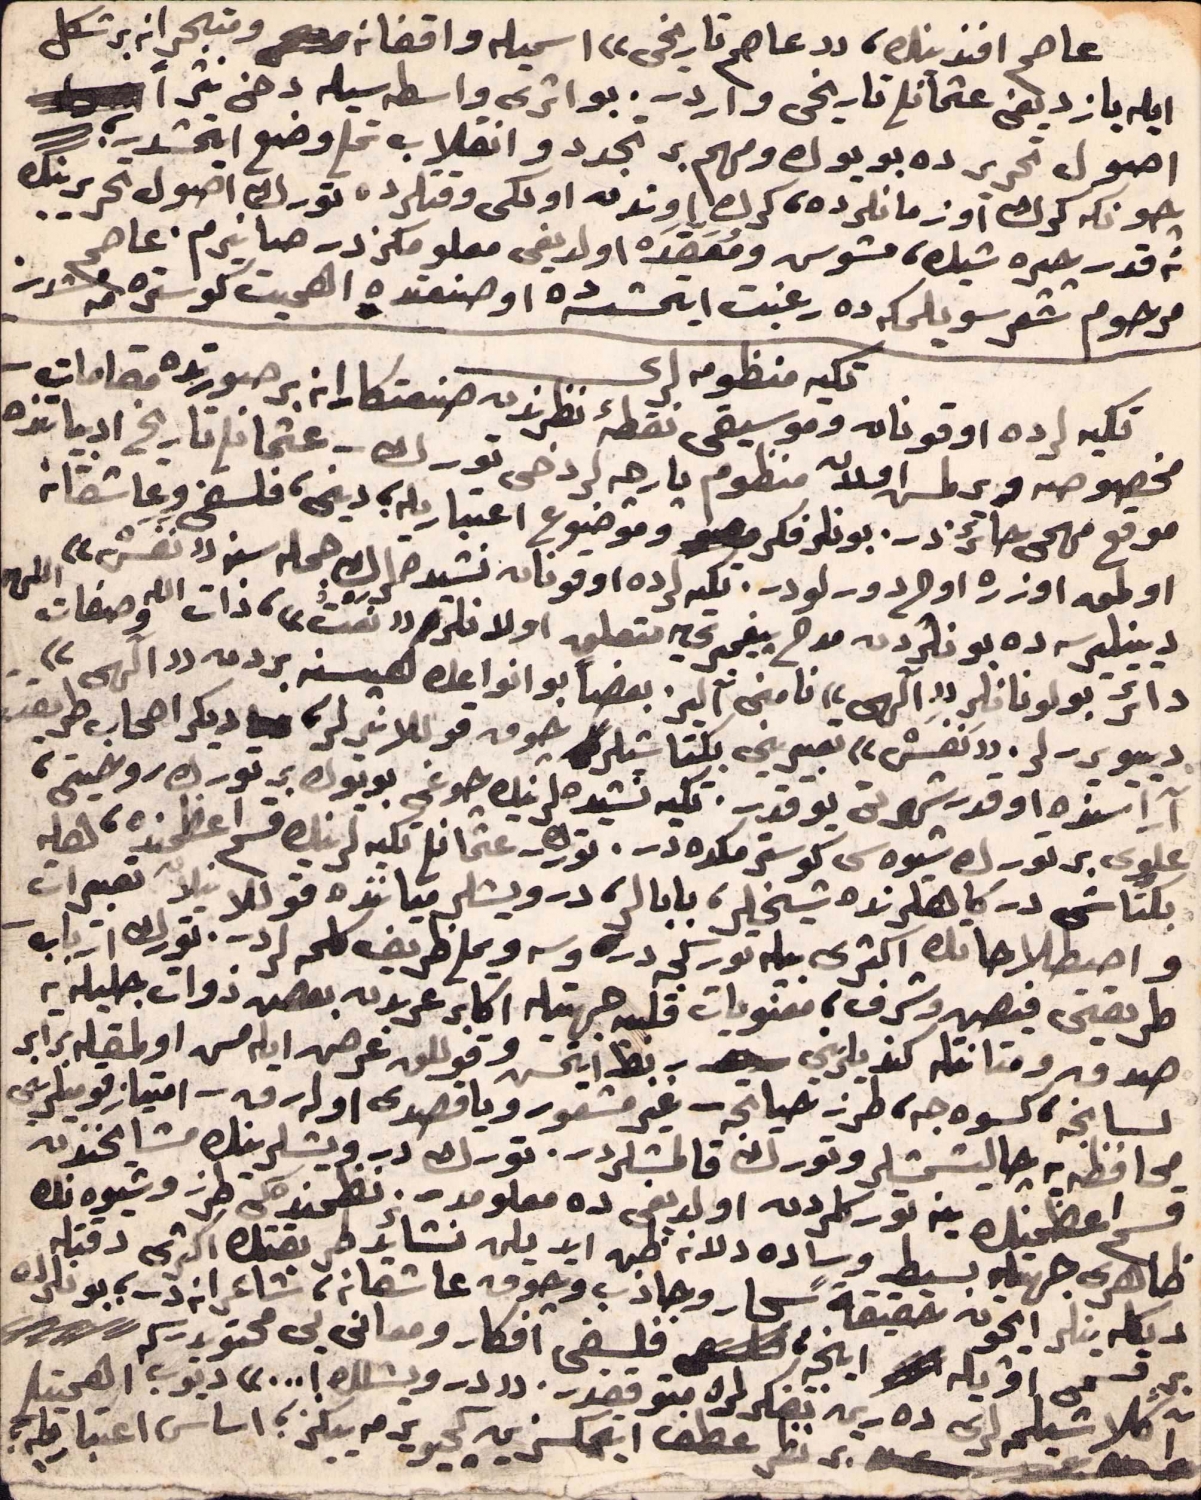 عاصم افندینك، «عاصم تاریخی» اسمیله واقفانه ومتبحرانه بر شكل
ایله یازدیغی عثمانلی تاریخی واردر. بو اثری واسطه سیله دخی نثراً
اصول تحریرده بویوك ومهم بر تجدد و انقلاب وضع ایتمشدر؛
چونكه كرك او زمانلرده، كرك اوندن اولكی وقتلرده تورك اصول تحریرینك
نه قدر چیره شیك، مشوس ومعقّد اولدیغی معلومكزدر صانیرم. عاصم
مرحوم شعر سویلمكه ده رغبت ایتمشسه ده او صنعتده اهمیت كوستره مه مشدر.
تكیه منظومه لری
تكیه لرده اوقونان وموسیقی نقطهٔ نظرندن صنعتكارانه بر صورتده مقامات
مخصوصه ویرلمش اولان منظوم پارچه لر دخی تورك - عثمانلی تاریخ ادبیاتنده
موقع مهمی حائزدر. بونلر فكر وموضوع اعتباریله، دینی، فلسفی وعاشقانه
اولمق اوزره اوچ دورلودر. تكیه لرده اوقونان نشیده لرك جمله سنه «نفَس»
دینیلیرسه ده بونلردن مدح پیغمبری یه متعلق اولانلره «نعت»، ذات الله وصفات الهی یه
دائر بولونانلر «الهی» نامنی آلیر. بعضاً بو انواعك هپسنه بردن «الهی»
دییویررلر. «نفَس» تعبیرینی بكتاشیلر چوق قوللانیرلر، دیكر اصحاب طریقت
آراسنده او قدر شهرتی یوقدر. تكیه نشیده لرینك چوغی بویوك بر تورك روحیتی،
علوی بر تورك شیوه سی كوسترمكده در. تورك - عثمانلی تكیه لرینك قسم اعظمنده، هله
بكتاشی دركاهلرنده شیخلر، بابالر، درویشلر میاننده قوللانیلان تعبیرات
و اصطلاحاتك اكثری بیله توركجه در وسویملی ظریف كلمه لردر. تورك ارباب
طریقتی فیض وشرف، معنویات قلبیه جهتیله اكابر عربدن بعض ذوات جلیله یه
صدق ومتانتله كندیلرینی ربط ایتمش وقوللق عرض ایله مش اولمقله برابر
لسانجه، كسوه جه، طرز حیاتجه - غیر مشعور ویا قصدی اوله رق - امتیاز قومیلرینی
محافظه یه چالیشمشلر وتورك قالمشلردر. تورك درویشلرینك مشایخندن
قسم اعظمینك ینه توركلردن اولدیغی ده معلومدر. نظمنده كی طرز وشیوه نك
ظاهری جهتیله بسیط وساده دلانه ظن ایدیلن نشائد طریقتك اكثری دقتله
دیكله ینلر ایچون حقیقةً سحار وجاذب وچوق عاشقانه، شاعرانه در؛ بونلرده
بر قسمی اویله اینجه، فلسفی افكار ومعانی یی محتویدر كه
آكلاشیلمه لری ده رین تفكرلره متوقفدر. «درویشلك!...» دیوب اهمیتسز
بر نظر عطف ایتمكسزین كچیویرمه یكز؛ اساس اعتباریله،